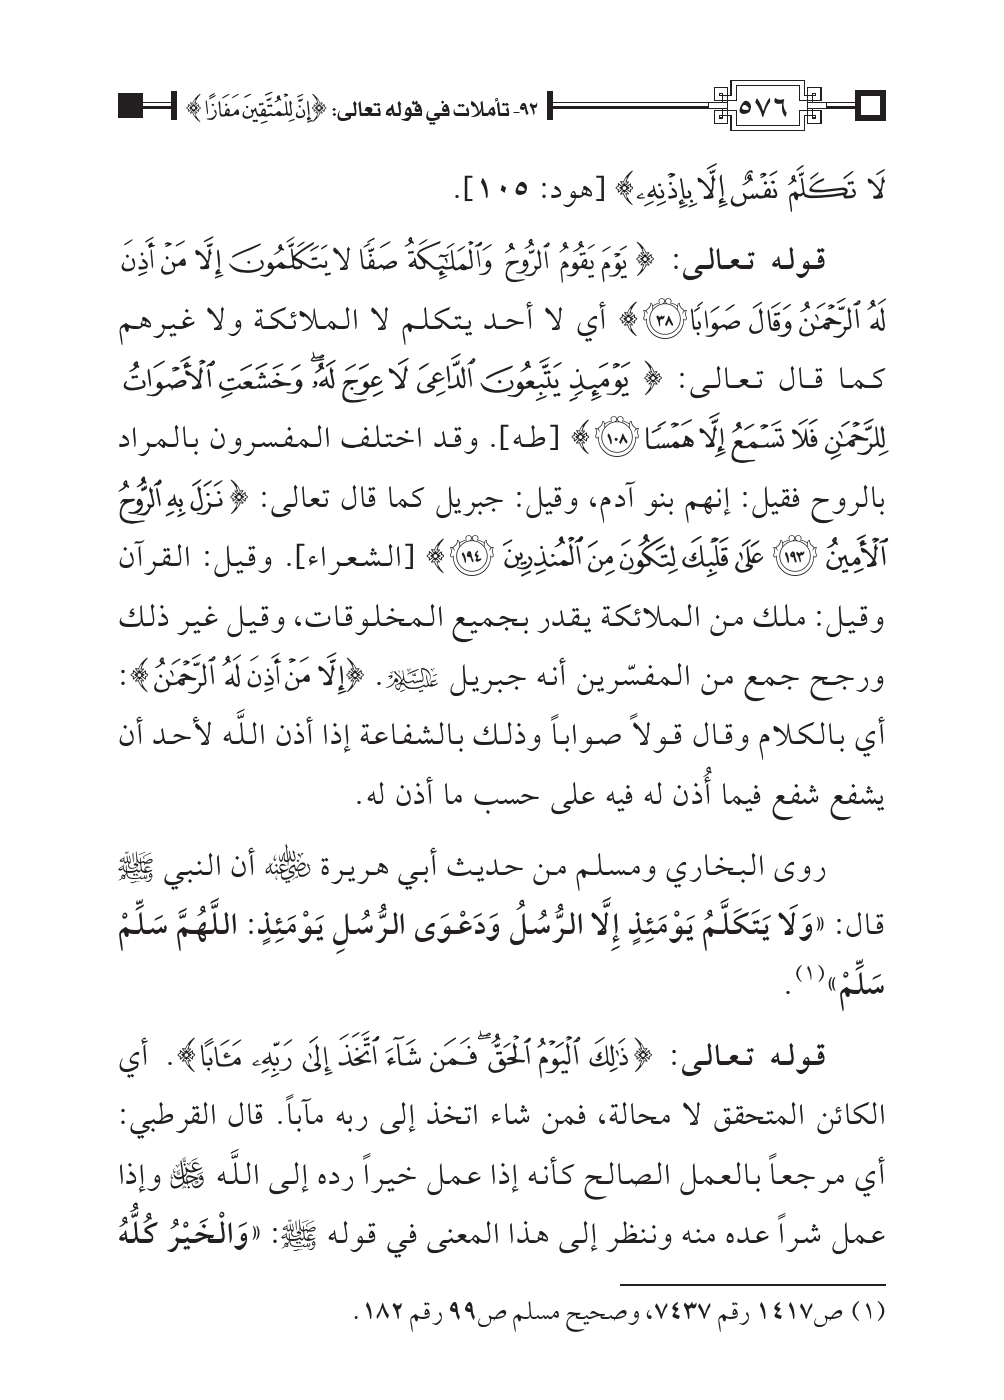 ٥٧٦
٩٢- تأملات في قوله تعالى: ﴿إِنَّ لِلْمُتَّقِينَ مَفَازًا﴾
لَا تَكَلَّمُ نَفْسٌ إِلَّا بِإِذْنِهِۦ﴾ [هود: ١٠٥].
قوله تعالى: ﴿يَوْمَ يَقُومُ ٱلرُّوحُ وَٱلْمَلَٰٓئِكَةُ صَفًّا لَا يَتَكَلَّمُونَ إِلَّا مَنْ أَذِنَ
لَهُ ٱلرَّحْمَٰنُ وَقَالَ صَوَابًا ٣٨﴾ أي لا أحد يتكلم لا الملائكة ولا غيرهم
كما قال تعالى: ﴿يَوْمَئِذٍ يَتَّبِعُونَ ٱلدَّاعِىَ لَا عِوَجَ لَهُۥ ۖ وَخَشَعَتِ ٱلْأَصْوَاتُ
لِلرَّحْمَٰنِ فَلَا تَسْمَعُ إِلَّا هَمْسًا ١٠٨﴾ [طه]. وقد اختلف المفسرون بالمراد
بالروح فقيل: إنهم بنو آدم، وقيل: جبريل كما قال تعالى: ﴿نَزَلَ بِهِ ٱلرُّوحُ
ٱلْأَمِينُ ١٩٣ عَلَىٰ قَلْبِكَ لِتَكُونَ مِنَ ٱلْمُنذِرِينَ ١٩٤﴾ [الشعراء]. وقيل: القرآن
وقيل: ملك من الملائكة يقدر بجميع المخلوقات، وقيل غير ذلك
ورجح جمع من المفسّرين أنه جبريل عليه السلام. ﴿إِلَّا مَنْ أَذِنَ لَهُ ٱلرَّحْمَٰنُ﴾:
أي بالكلام وقال قولاً صواباً وذلك بالشفاعة إذا أذن اللَّه لأحد أن
يشفع شفع فيما أُذن له فيه على حسب ما أذن له.
روى البخاري ومسلم من حديث أبي هريرة رضي الله عنه أن النبي ﷺ
قال: «وَلَا يَتَكَلَّمُ يَوْمَئِذٍ إِلَّا الرُّسُلُ وَدَعْوَى الرُّسُلِ يَوْمَئِذٍ: اللَّهُمَّ سَلِّمْ
سَلِّمْ»(١).
قوله تعالى: ﴿ذَٰلِكَ ٱلْيَوْمُ ٱلْحَقُّ ۖ فَمَن شَآءَ ٱتَّخَذَ إِلَىٰ رَبِّهِۦ مَـَٔابًا﴾. أي
الكائن المتحقق لا محالة، فمن شاء اتخذ إلى ربه مآباً. قال القرطبي:
أي مرجعاً بالعمل الصالح كأنه إذا عمل خيراً رده إلى اللَّه عز وجل وإذا
عمل شراً عده منه وننظر إلى هذا المعنى في قوله ﷺ: «وَالْخَيْرُ كُلُّهُ
(١) ص١٤١٧ رقم ٧٤٣٧، وصحيح مسلم ص٩٩ رقم ١٨٢.